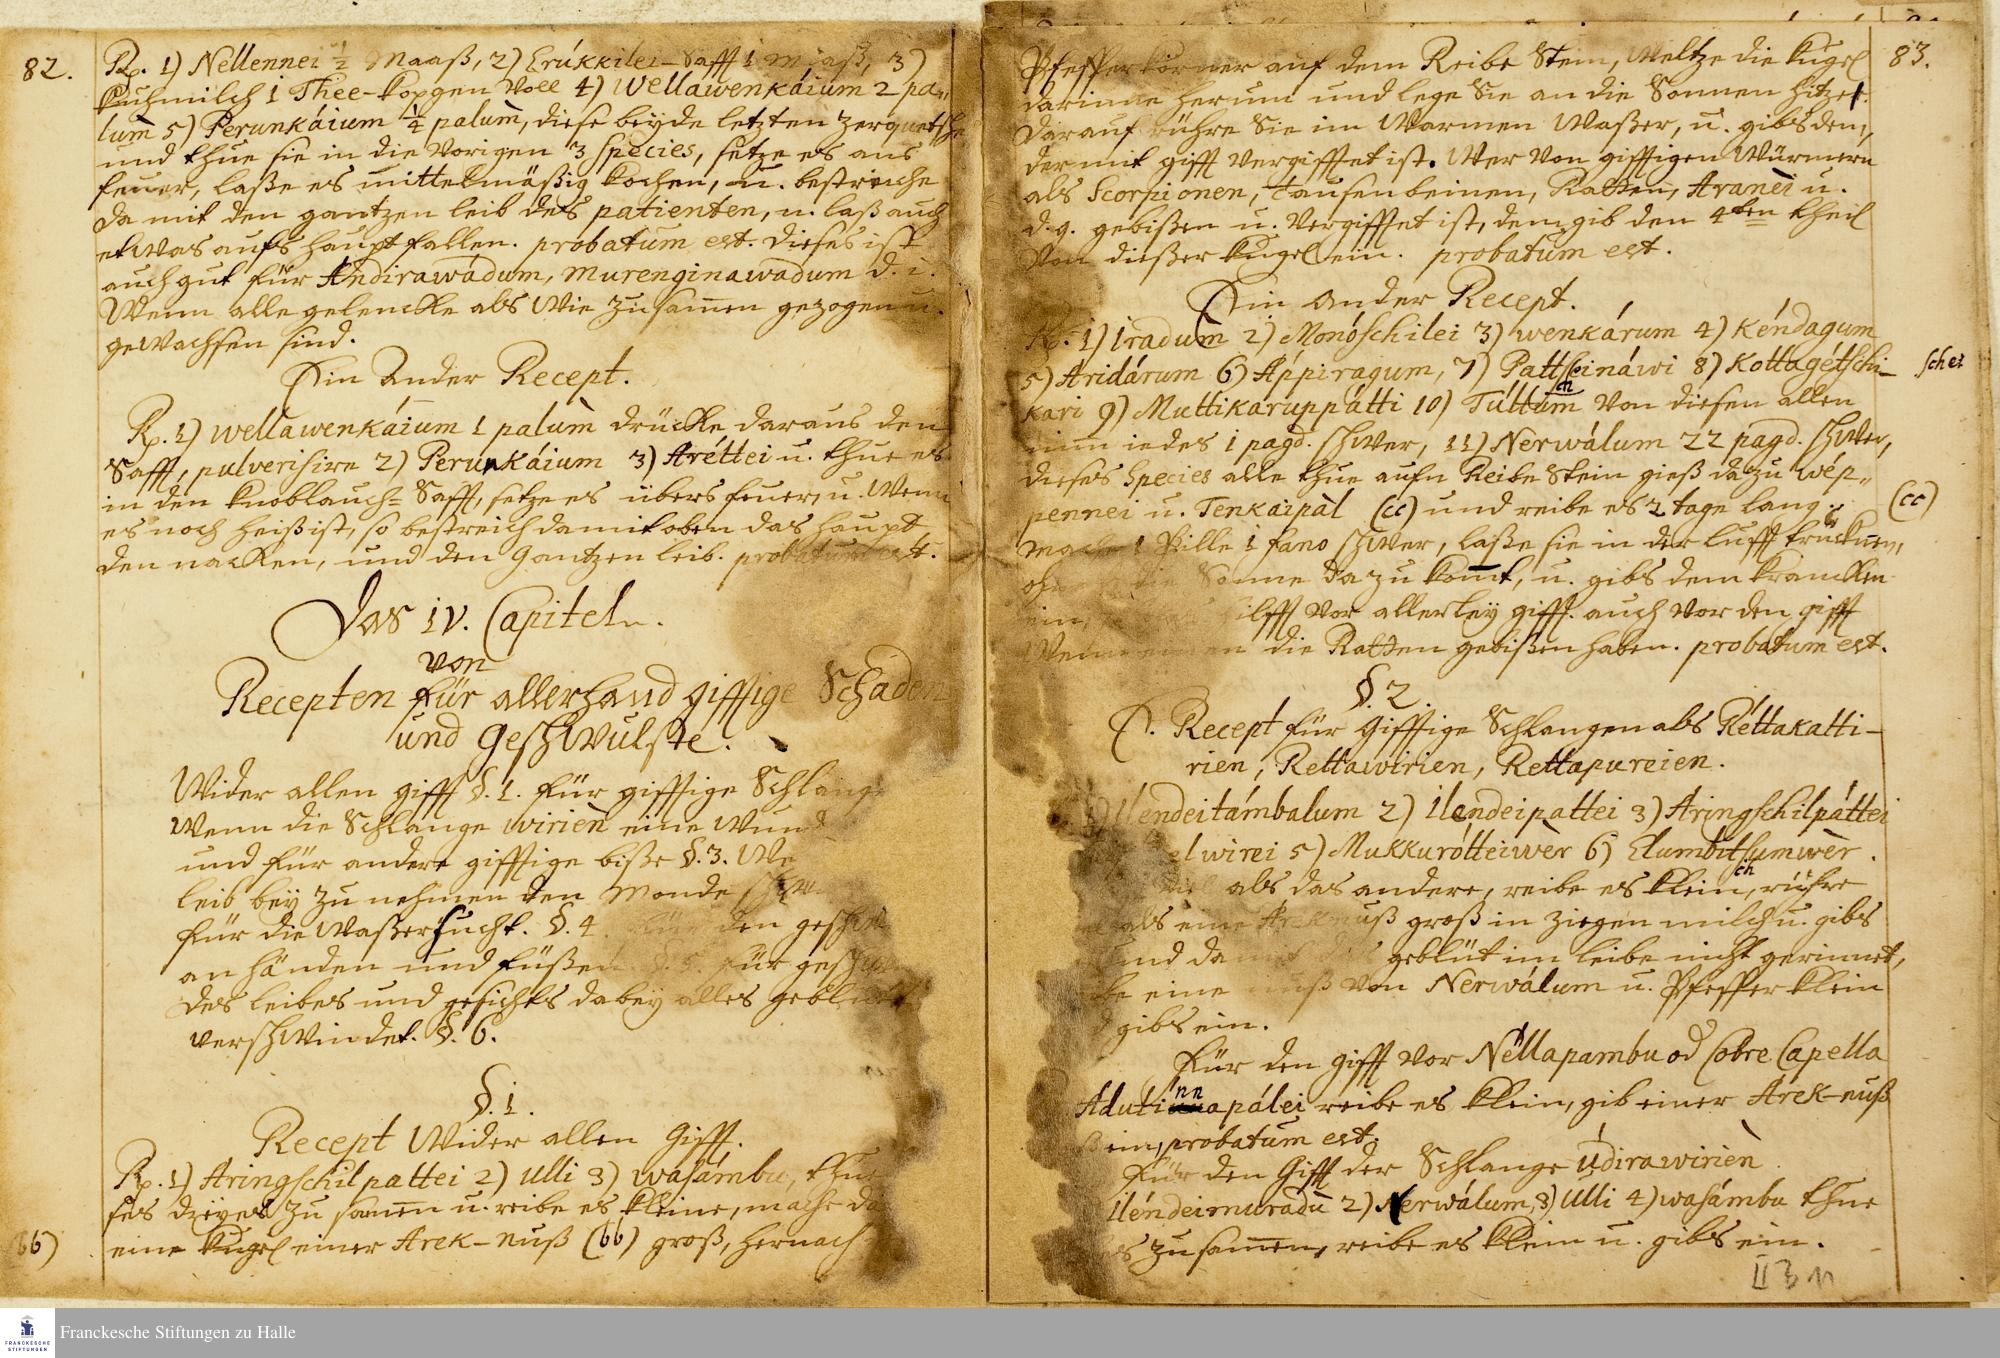 82.
Rp. 1) Nellennei ½ Maaß, 2) Erúkkilei-Safft 1 Maaß, 3)
Kuhmilch 1 Thee-Kopgen voll 4) Wellawenkáium 2 pa„
lum 5) Perunkáium ¼ palum, diese beyde letzten zerquetsche
und thue sie in die vorigen 3 species, setze es ans
feuer, laße es mittelmäßig kochen, u. bestreiche
da mit den gantzen leib des patienten, u. laß auch
etwas aufs haupt fallen. probatum est. dieses ist
auch gut für Andirawádum, Murenginawadum d. i.
Wenn alle gelencke als wie zusam̄en gezogen u.
gewachsen sind.
Ein Ander Recept.
Rp. 1) wellawenkáium 1 palum drücke daraus den
Safft, pulverisire 2) Perunkáium 3) Aréttei u. thue es
in den Knoblauch-Safft, setze es übers feuer, u. Wenn
es noch heiß ist, so bestreich damit oben das haupt
den nacken, und den Gantzen leib. probatum est.
Das IV. Capitel.
von
Recepten für allerhand gifftige Schäden
und Geschwulste.
Wider allen gifft §. 1. für gifftige Schlang
Wenn die Schlange wirièn eine Wund
und für andere gifftige biße §. 3. We
leib bey zu nehmen den Monde
für die Waßersucht. §. 4. für den geschw
an händen und füßen. §. 5. für geschw
des leibes und gesichts dabey alles geblüt
verschwindet. §. 6.
§. 1.
Recept Wider allen Gifft.
Rp. 1) Aringschilpattei 2) Ulli 3) wasámbu, thue
ses dreyes zu sam̄en u. reibe es kleine, mache da
66) eine Kugel einer Arek-nuß (bb) groß, hernach
83.
Pfefferkörner auf dem Reibe Stein, Weltze die Kugel
darinne herum und lege sie an die Sonnen hitze.
darauf rühre sie im Warmen Waßer, u. gibs dem,
der mit gifft vergifftet ist. Wer von gifftigen Würmern
als Scorpionen, Tausenbeinen, Ratten, Aranei u.
d. g. gebißen u. vergifftet ist, dem gib den 4ten theil
von dießer Kugel ein. probatum est.
Ein ander Recept.
Rp. 1) Iradum 2) Monóschilei 3) wenkárum 4) Kéndagum
5) Aridárum 6) Áppiragum, 7) Pattscináwi 8) Kottagétschi- schei
kari 9) Muttikáruppátti 10) Túttum von diesen allen
ch
nim iedes 1 pagd. schwer, 11) Nerwálum 22 pagd. schwer,
dieses Species alle thue aufn Reibe Stein gieß dazu wép„
pennei u. Tenkaipàl (cc) und reibe es 2 tage lang. (cc)
mache 1 Pille 1 fano schwer, laße sie in der lufft trücknen,
die Sonne dazu kom̄t, u. gibs dem krancken
ein, hilfft vor allerley gifft. auch vor den gifft
Wenn einen die Ratten gebißen haben. probatum est.
§. 2.
D. Recept für gifftige Schlangen als Réttakatti-
rien, Rettawirien, Rettapureien.
1) Ilendeitámbalum 2) Ilendeipattei 3) Aringschilpáttei
elwirei 5) Mukkurótteiwèr 6) Elumbitsumwèr.
ch
viel als das andere, reibe es klein, rühre
als eine Areknuß groß in ziegen milch u. gibs
und damit das geblüt im leibe nicht gerinnet,
be eine nuß von Nerwálum u. Pfeffer klein
gibs ein.
für den Gifft vor Nállapambu od Cobre Capella
nn
Aduti apálei reibe es klein, gib einer Arek-nuß
ein, probatum est.
für den Gifft der Schlange Udirawirièn
Iléndeimuradù 2) Nerwálum, 3) Ulli 4) wasámbu thue
es zusam̄en, reibe es klein u. gibs ein.
II 3 11
FRANCKESCHE STIFTUNGEN
Franckesche Stiftungen zu Halle